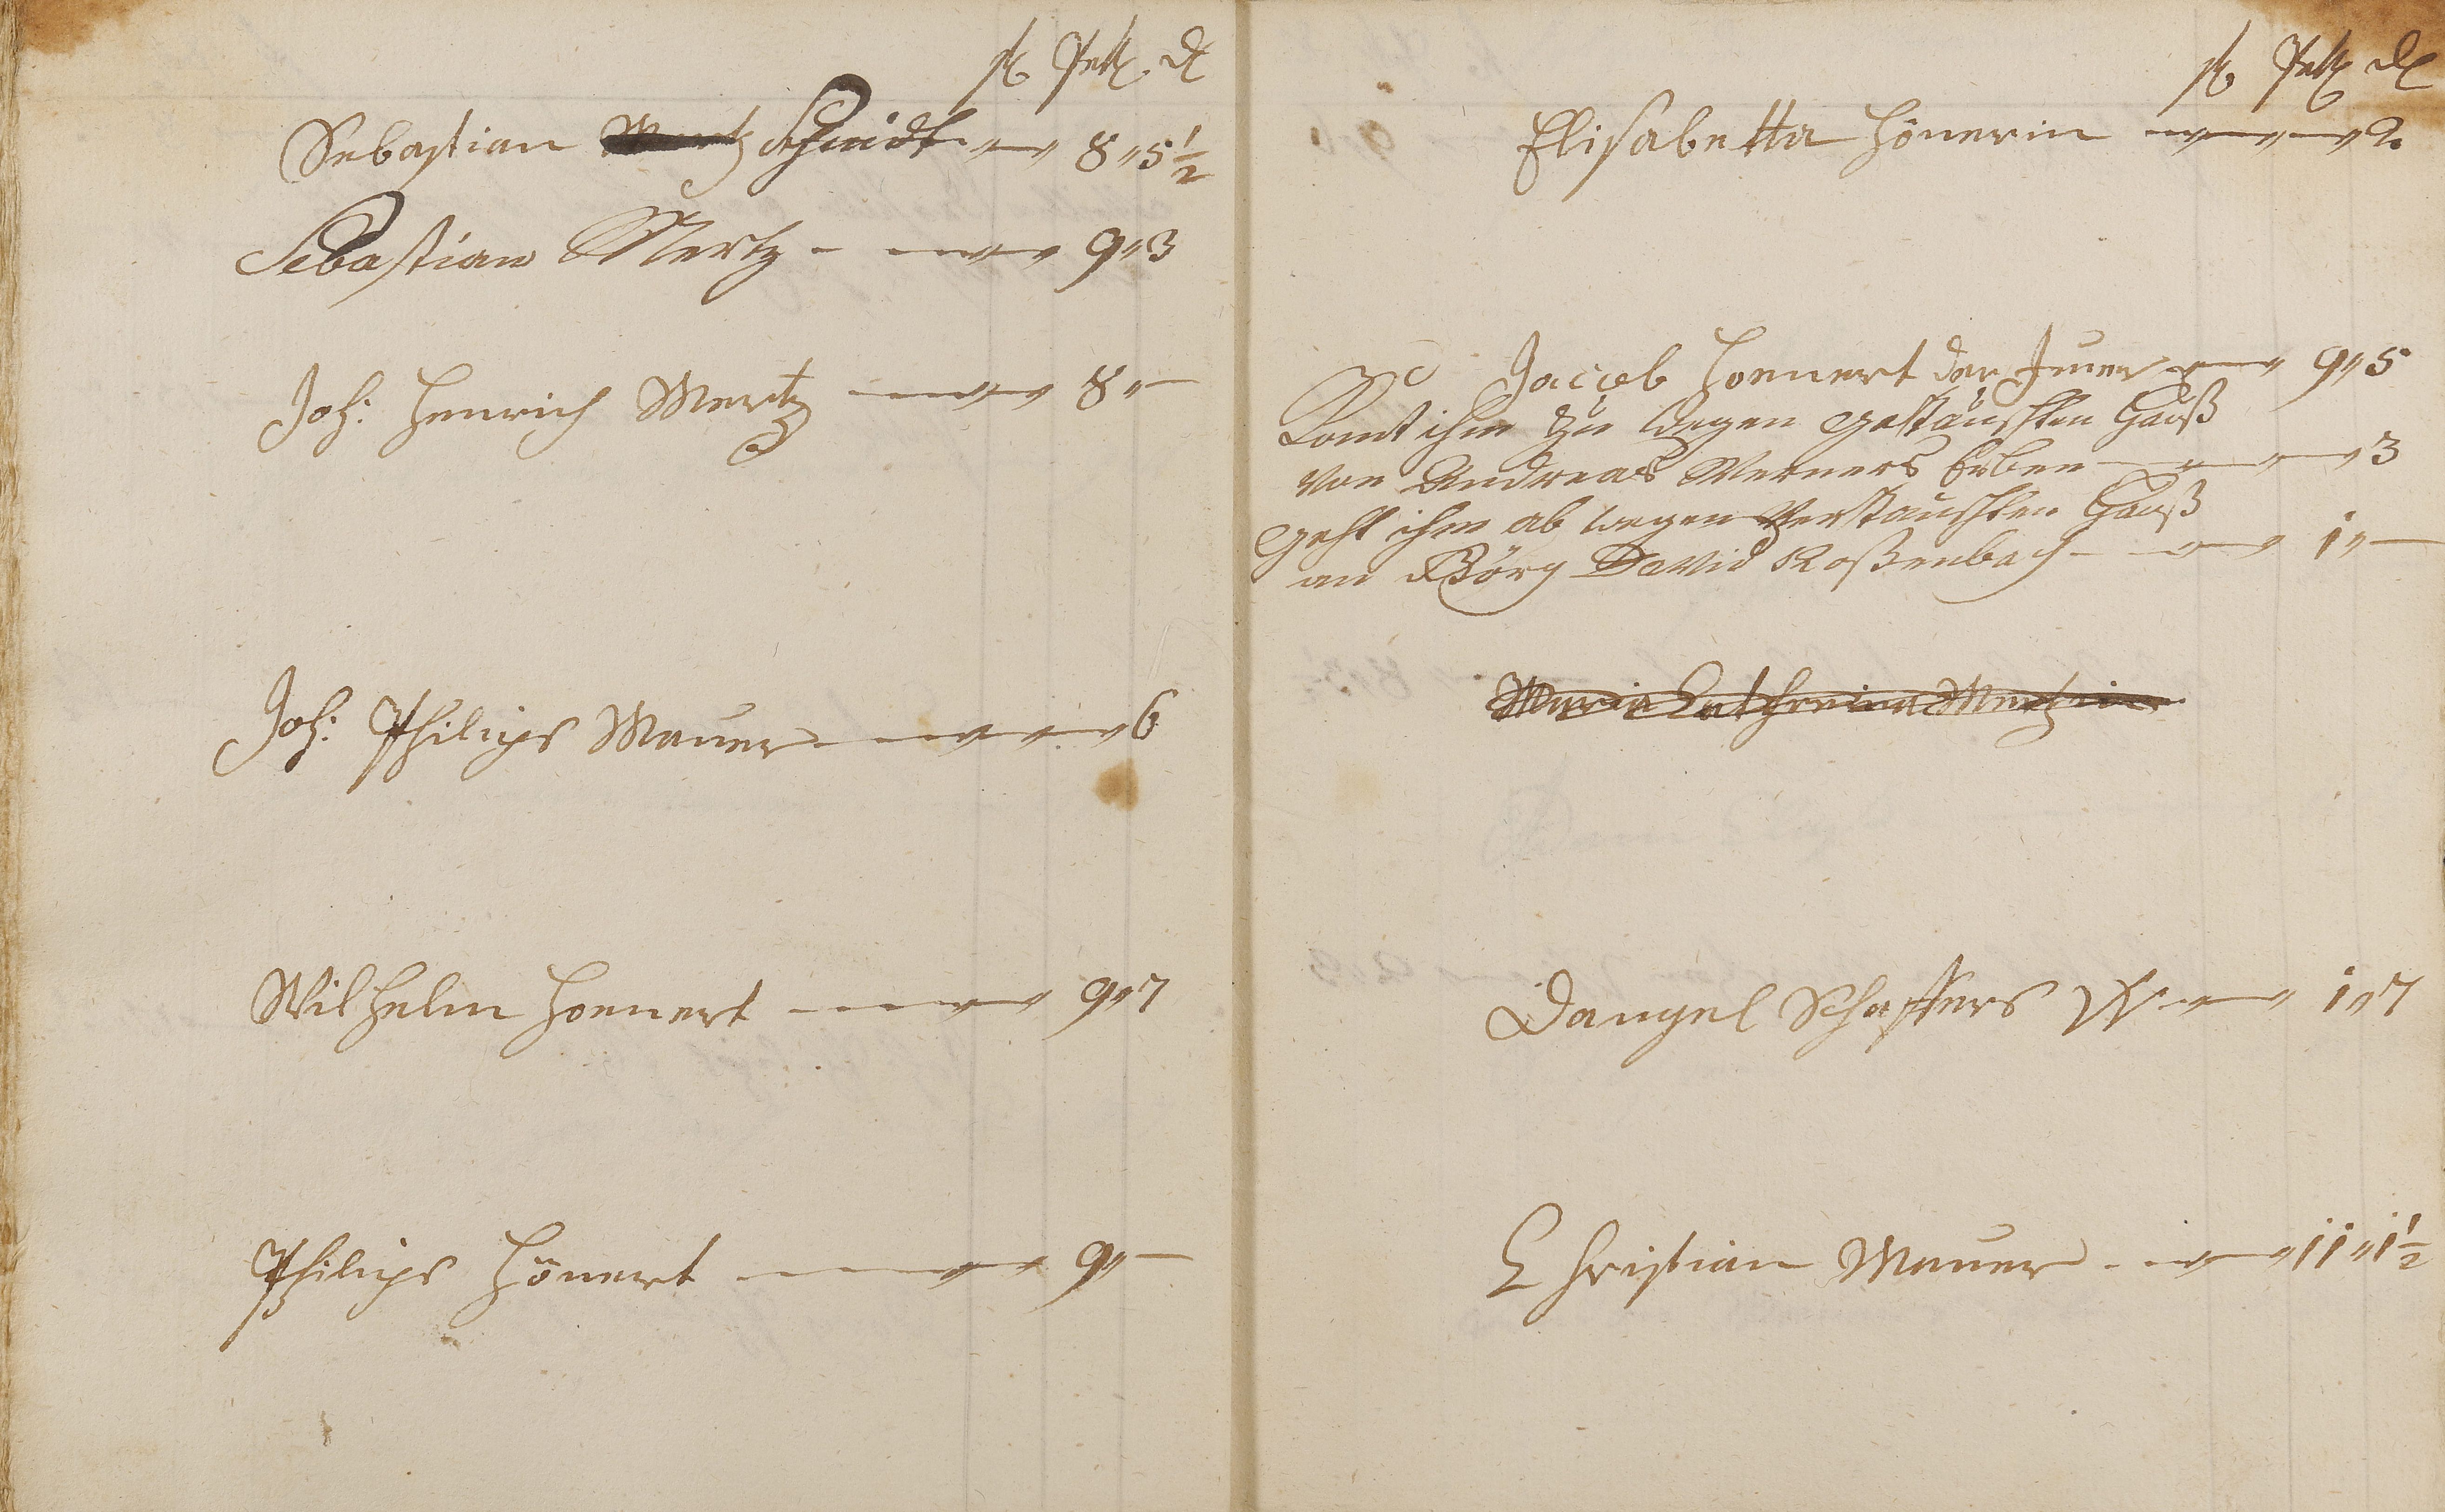 fl Pett. d
Sebastian Schmidt — 8 " 5 1/2
Sebastian Mertz — 9 " 3
Joh: Henrich Mertz — 8 " —
Joh: Philips Mauer — " 6
Wilhelm Hoenert — 9 " 7
Philips Hönert — 9 " —
fl Pett d
Elisabetta Hönerin — " 2.
Jacob Hoenert der Juner — 9 " 5
Komt ihm zu wegen gestauschten Hauß
von Andreas Werners Erben — " 3
geht ihm ab wegen verstauschten Hauß
an Görg David Roßenbach — 1 " —
Maria Cathreina Mertzin
Dangel Schaffers — 1 " 7
Christian Mauer — 11 " 1 1/2